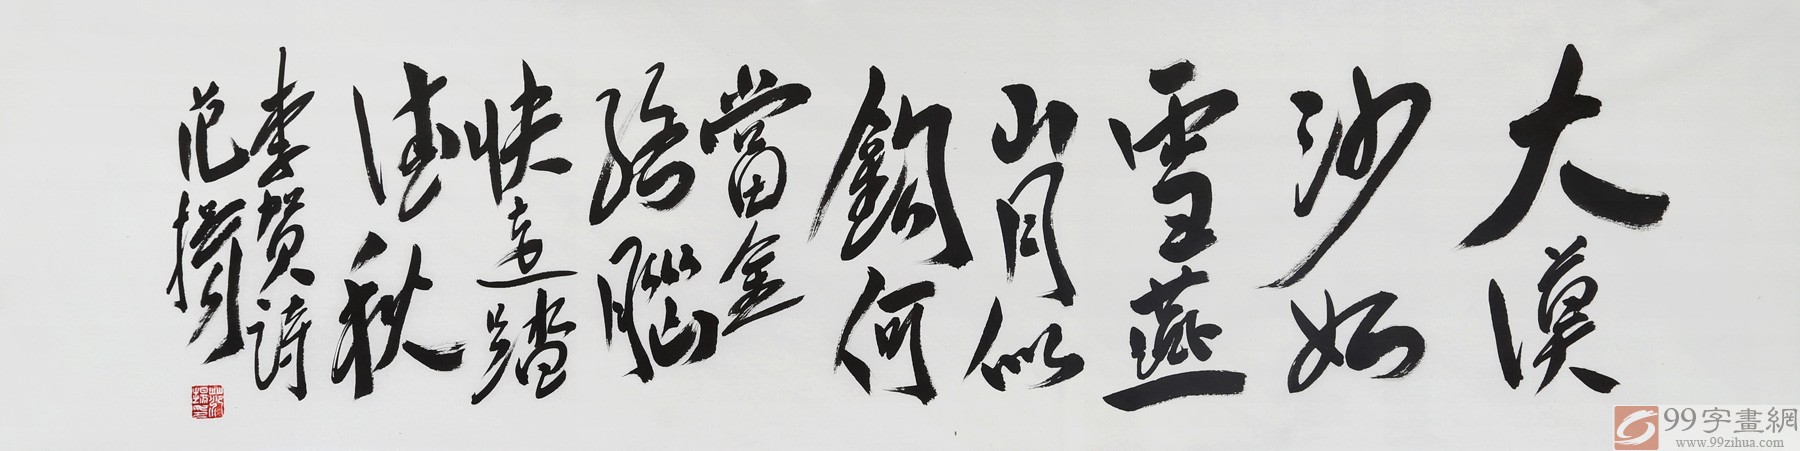 大漠
沙如
雪燕
山月似
鈎何
當金
絡腦
快走踏
清秋
李贺詩
范
99字畫網
www.99zihua.com